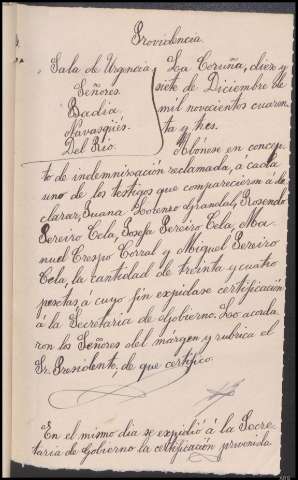 Providencia
Sala de Urgencia
Señores
Badia
Navasqüés
Del Rio.
La Coruña, diez y
siete de Diciembre de
mil novecientos cuaren-
ta y tres.
Abónese en concep-
to de indemnización reclamada, a cada
uno de los testigos que comparecieron á de
clarar, Juana Lorenzo Grandal, Rosendo
Pereiro Cela, Josefa Pereiro Cela, Ma-
nuel Crespo Corral y Miguel Pereiro
Cela, la cantidad de treinta y cuatro
pesetas, á cuyo fin expidase certificación
á la Secretaria de Gobierno. Lo acorda
ron los Señores del márgen, y rubrica el
Sr. Presidente, de que certifico.
En el mismo dia se expidió á la Secre-
taria de Gobierno la certificación prevenida